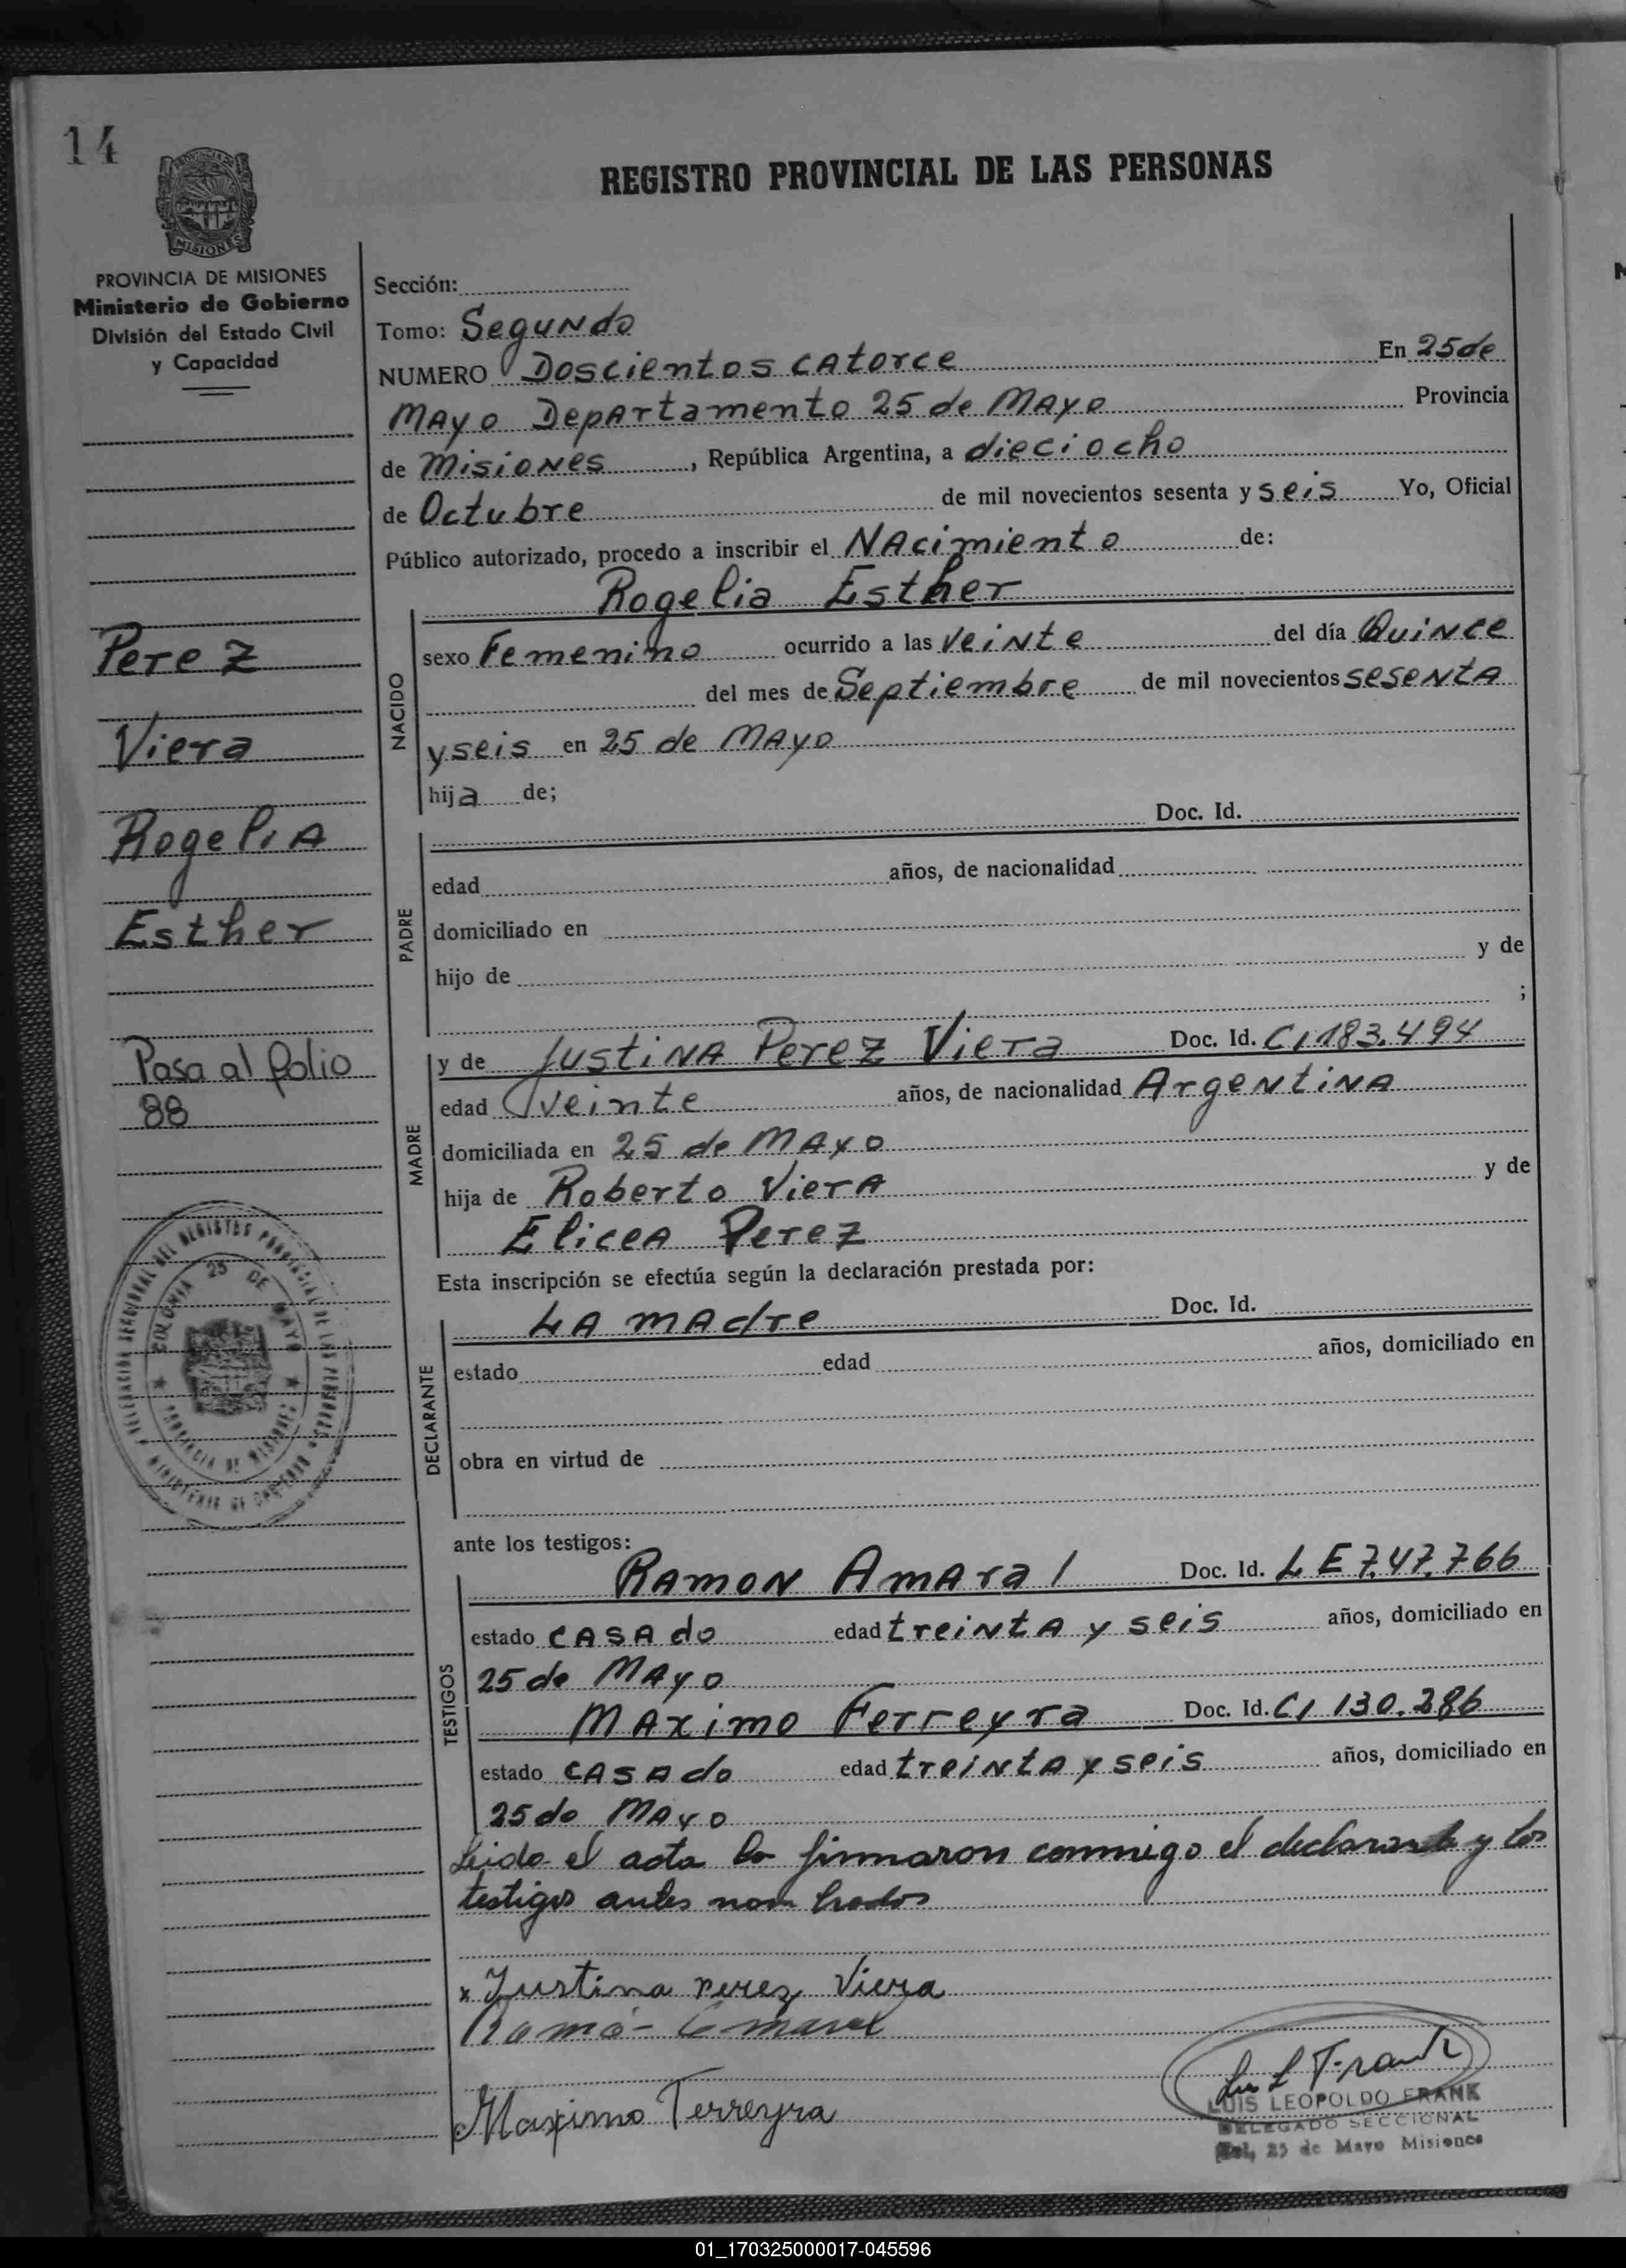 14
REGISTRO PROVINCIAL DE LAS PERSONAS
MISIONES
PROVINCIA DE MISIONES
Ministerio de Gobierno
División del Estado Civil
y Capacidad
Perez
Viera
Rogelia
Esther
Pasa al folio
88
COLONIA 25 DE MAYO
PROVINCIA DE MISIONES
Sección:
Tomo: Segundo
NUMERO Doscientos catorce En 25 de
Mayo Departamento 25 de Mayo Provincia
de Misiones, República Argentina, a dieciocho
de Octubre de mil novecientos sesenta y seis Yo, Oficial
Público autorizado, procedo a inscribir el Nacimiento de:
Rogelia Esther
NACIDO
sexo Femenino ocurrido a las veinte del día Quince
del mes de Septiembre de mil novecientos sesenta
y seis en 25 de Mayo
hija de;
Doc. Id.
PADRE
edad años, de nacionalidad
domiciliado en
hijo de y de
;
MADRE
y de Justina Perez Viera Doc. Id. CI 183.494
edad veinte años, de nacionalidad Argentina
domiciliada en 25 de Mayo
hija de Roberto Viera y de
Elicea Perez
Esta inscripción se efectúa según la declaración prestada por:
La madre Doc. Id.
DECLARANTE
estado edad años, domiciliado en
obra en virtud de
ante los testigos:
Ramon Amaral Doc. Id. LE 7.47.766
TESTIGOS
estado casado edad treinta y seis años, domiciliado en
25 de Mayo
Maximo Ferreyra Doc. Id. CI 130.286
estado casado edad treinta y seis años, domiciliado en
25 de Mayo
Leido el acta la firmaron conmigo el declarante y los
testigos antes nombrados
x Justina perez Viera
Maximo Ferreyra
LUIS LEOPOLDO FRANK
DELEGADO SECCIONAL
Col. 25 de Mayo Misiones
01_170325000017-045596